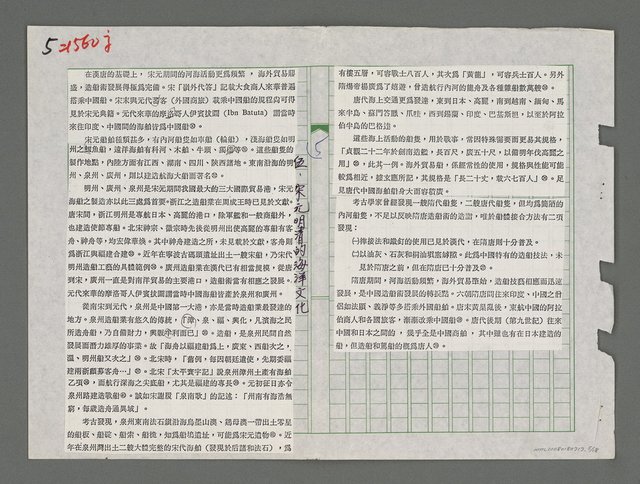 有樓五層，可容戰士八百人，其次爲「黃龍」，可容兵士百人。另外
隋煬帝楊廣爲了婚遊，曾造航行內河的龍舟及各種雜船數萬艘
唐代海上交通更爲發達，東到日本、高麗，南到越南、緬甸、馬
來半島、蘇門答臘、爪哇，西到錫蘭、印度、巴基斯坦，以至於阿拉
伯半島的巴格達。
這些海上活動的船隻，用於戰事，常因特殊需要而更易其規格，
「貞觀二十二年於劍南造艦，長百尺，廣五十尺，以備明年伐高麗之
用」，此其一例。海外貿易船，係經常性的使用，規格與性能可能
較爲相近，據文應所記，其規格是「長二十丈，載六七百人」。足
見唐代中國海船船身大而容積廣。
考古學家曾經發現一艘隋代船隻，二艘唐代船隻，但均爲簡陋的
內河船隻，不足以反映隋唐造船術的造詣，唯於船體接合方法有二項
發現：
㈠榫接法和鐵釘的使用已見於漢代，在隋唐則十分普及。
㈡以油灰、石灰和桐油填塞縫隙。此爲中國特有的造船技法，未
見於隋唐之前，但在隋唐已十分普及。
隋唐期間，河海活動頻繁，海外貿易亦始，造船技藝相應而迅速
發展，是中國造船術發展的轉捩點。六朝隋唐間往來印度、中國之僧
侶如法顯、義淨等多搭乘外國船舶。唐末黃巢亂後，東航中國的阿拉
伯商人和各國旅客，漸漸改乘中國船。唐代後期（第九世紀）在來
中國和日本之間的，幾乎全是中國商船，其中雖也有在日本建造的
船，但造船和駕船的概爲唐人。
5
伍、宋元明清的海洋文化
5 1560字
在漢唐的基礎上，宋元期間的河海活動更爲頻繁，海外貿易隆
盛，造船術發展得極爲完備。宋「嶺外代答」記載大食商人來華普遍
搭乘中國船。宋末與元代蕃客（外國商旅）載乘中國船的規程尚可得
見於宋元典籍。元代來華的摩洛哥人伊賓拔圖（Ibn Batuta）謂當時
來往印度、中國間的海船皆爲中國船
宋元船舶種類甚多，有內河船隻如車船（輪船），淺海船隻如明
州之鱷魚船，遠洋海船有料河、木舶、牛頭、獨檣等。這些船隻的
製作地點，內陸方面有江西、湖南、四川、陝西諸地。東南沿海的明
州、泉州、廣州，則以建造航海大船而著名
明州、廣州、泉州是宋元期間我國最大的三大國際貿易港，宋元
海船之製造亦以此三處爲首要。浙江之造船業在周成王時已見於文獻，
唐宋間，浙江明州是專航日本、高麗的港口，除軍艦和一般商船外，
也建造使節專船。北宋神宗、徽宗時先後從明州出使高麗的專船有客
舟、神舟等，均宏偉華煥。其中神舟建造之所，未見載於文獻，客舟則
爲浙江與福建合建。近年在寧波古碼頭遺址出土一艘宋船，乃宋代
明州造船工藝的具體範例。廣州造船業在漢代已有相當規模，從唐
到宋，廣州一直是對南洋貿易的主要港口，造船術當有相應之發展。
元代來華的摩洛哥人伊賓拔圖謂當時中國海船皆產於泉州和廣州。
從南宋到元代，泉州是中國第一大港，亦是當時造船業最發達的
地方。泉州造船業有悠久的傳統，「漳、泉、福、興化，凡濱海之民
所造舟船，乃自備財力，興販牟利而已」。造船，是泉州民間自然
發展而潛力雄厚的事業。故「海舟以福建船爲上，廣東、西船次之，
溫、明州船又次之」。北宋時，「舊例，每因朝廷遣使，先期委福
建兩浙顧募客舟…」。北宋「太平寰宇記」說泉州漳州土產有海船
乙項，而航行深海之尖底船，尤其是福建的專長。元初征日亦令
泉州路建造戰船。誠如宋謝履「泉南歌」的記述：「州南有海浩無
窮，每歲造舟通異域」。
考古發現，泉州東南法石鎮沿海烏墨山澳、鷄母澳一帶出土零星
的船板、船碇、船索、船桅，知爲船塢遺址，可能爲宋元造物。近
年在泉州灣出土二艘大體完整的宋代海船（發現於后渚和法石），爲